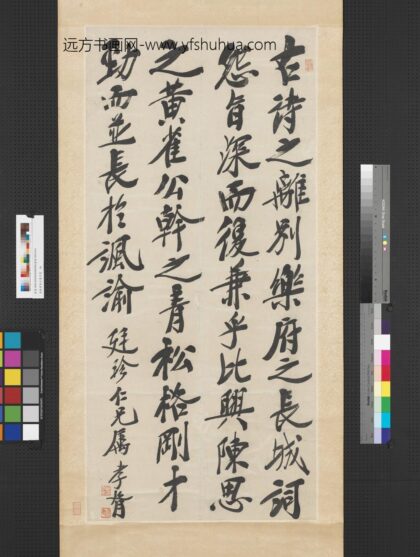 远方书画网-www.yfshuhua.com
古詩之離別樂府之長城詞
怨旨深而復兼乎比興陳思
之黃雀公幹之青松格剛才
勁而並長於諷諭
廷珍仁兄屬 孝胥